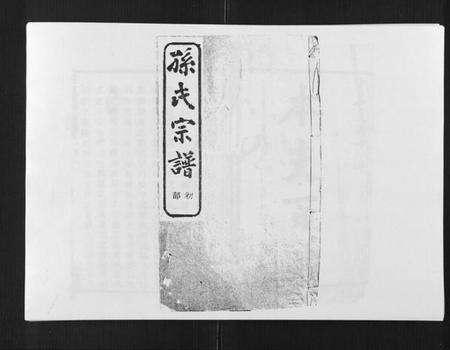 孫氏宗譜
初部